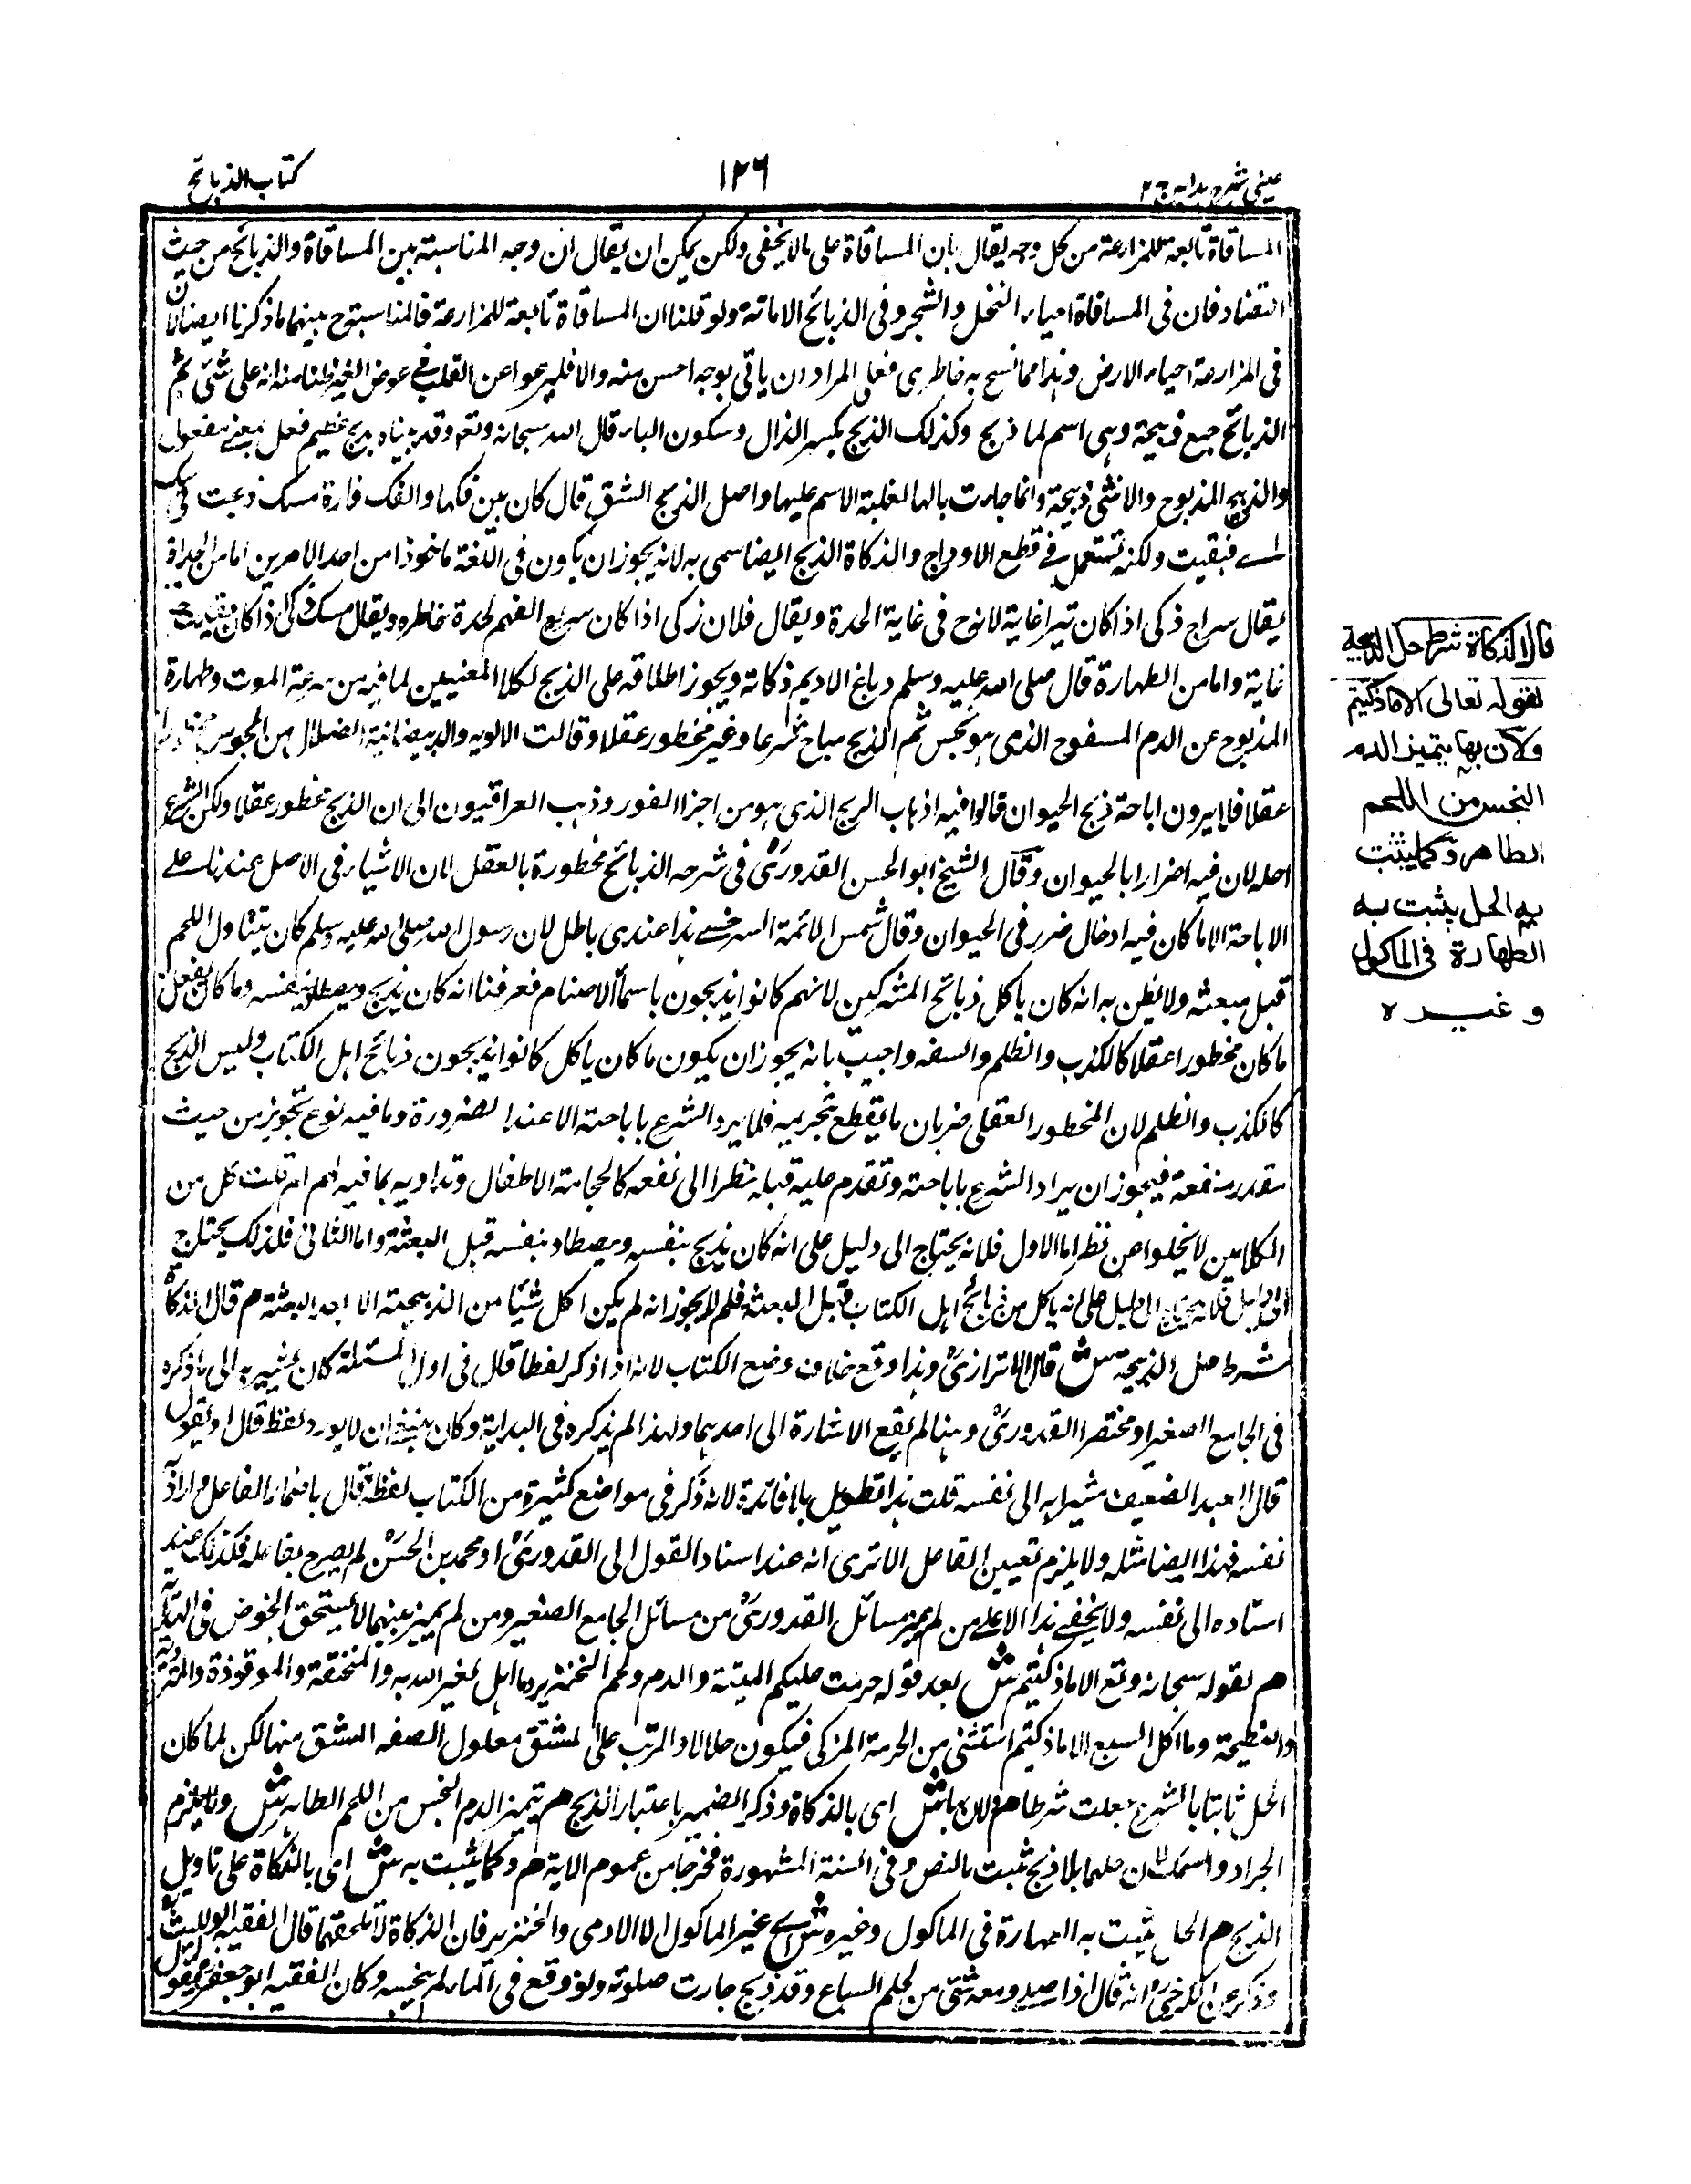 عینی شرح هدایه ج ٢
١٢٦
كتاب الذبائح
المساقاة تابعة للمزارعة من كل وجه يقال بان المساقاة على مالا يخفى ولكن يمكن ان يقال ان وجه المناسبة بين المساقاة والذبائح من حيث
التضاد فان فى المساقاة احياء النخل والشجر وفى الذبائح الاماتة ولو قلنا ان المساقاة تابعة للمزارعة فالمناسبة بينهما ما ذكرنا ايضا لان
فى المزارعة احياء الارض وهذا مما نسح به خاطرى فعلى المراد ان ياتى بوجه احسن منه والا فليرعوا عن القلب فى عوض الغير ظنا منه انه على شئ ثم
الذبائح جمع ذبيحة وهى اسم لما ذبح وكذلك الذبح بكسر الذال وسكون الباء قال الله سبحانه وتع وفديناه بذبح عظيم فعل بمعنى مفعول
والذبيح المذبوح والانثى ذبيحة وانما جاءت بالها لغلبة الاسم عليها واصل الذبح الشق قال كان بين فكها والفك فارة مسك ذبحت فى سك
اے فتقت ولكنه تستعمل فى قطع الاوداج والذكاة الذبح ايضا سمى به لانه يجوز ان يكون فى اللغة ماخوذا من احد الامرين اما من الحدة
يقال سراج ذكى اذا كان نيرا غاية لانه ح فى غاية الحدة ويقال فلان زكى اذا كان سريع الفهم لحدة خاطره ويقال مسك ذكى اذا كان
غاية واما من الطهارة قال صلى الله عليه وسلم دباغ الاديم ذكاته ويجوز اطلاقه على الذبح لكلا المعنيين لما فيه من سرعة الموت وطهارة
المذبوح عن الدم المسفوح الذى هو نجس ثم الذبح مباح شرعا وغير محظور عقلا وقالت الضلال من المجوس
عقلا فلا يرون اباحة ذبح الحيوان قالوا فيه اذهاب الريح الذى هو من اجزاء النور وذهب العراقيون الى ان الذبح محظور عقلا ولكن الشرع
احله لان فيه اضرارا بالحيوان وقال الشيخ ابو الحسن القدورىؒ فى شرحه الذبائح محظورة بالعقل لان الاشياء فى الاصل عندنا على
الاباحة الا ما كان فيه ادخال ضرر فى الحيوان وقال شمس الائمة السرخسے هذا عندى باطل لان رسول الله صلى الله عليه وسلم كان يتناول اللحم
قبل مبعثه ولا يظن به انه كان ياكل ذبائح المشركين لانهم كانوا يذبحون باسماء الاصنام فعرفنا انه كان يذبح ويصطاد بنفسه وما كان يفعل
ما كان محظورا عقلا كالكذب والظلم والسفه واجيب بانه يجوز ان يكون ما كان ياكل كانوا يذبحون ذبائح اهل الكتاب وليس الذبح
كالكذب والظلم لان المحظور العقلى ضربان ما يقطع بتحريمه فلا يرد الشرع باباحته الا عند الضرورة وما فيه نوع تجويز من حيث
تقدر منفعة فيجوز ان يراد الشرع باباحته وتقدم عليه قبله نظرا الى نفعه كالحجامة الاطفال وتداويه بما فيه الم اھ قلت كل من
الكلامين لا يخلوا عن نظر اما الاول فلانه يحتاج الى دليل على انه كان يذبح بنفسه ويصطاد بنفسه قبل البعثة واما الثانى فلذلك يحتاج
الى دليل فلانه يحتاج الى دليل على انه ياكل من ذبائح اهل الكتاب قبل البعثة فلم لا يجوز انه لم يكن اكل شيئا من الذبيحة الا بعد البعثة م قال الذكاة
شرط حل الذبيحة ش قال الاترازىؒ وهذا وقع خلاف وضع الكتاب لانه اذا ذكر لفظ قال فى اول المسئلة كان يشير به الى ما ذكره
فى الجامع الصغير او مختصر القدورىؒ وهنا لم يقع الاشارة الى احدهما ولهذا لم يذكره فى البداية وكان ينبغى ان لا يورد لفظ قال او يقول
قال العبد الضعيف مشيرا به الى نفسه قلت هذا تطويل بلا فائدة لانه ذكر فى مواضع كثيرة من الكتاب لفظة قال باضمار الفاعل واراد به
نفسه فهذا ايضا مثله ولا يلزم تعيين الفاعل الا ترى انه عند اسناد القول الى القدورىؒ او محمد بن الحسنؒ لم يصرح بفاعله فكذلك عند
اسناده الى نفسه ولا يخفى هذا الا على من لم يميز مسائل القدورىؒ من مسائل الجامع الصغير ومن لم يميز بينهما لا يستحق الخوض فى الهداية
م لقوله سبحانه وتع الا ما ذكيتم ش بعد قوله حرمت عليكم الميتة والدم ولحم الخنزير وما اهل لغير الله به والمنخنقة والموقوذة والمتردية
والنطيحة وما اكل السبع الا ما ذكيتم استثنى من الحرمة المزكى فيكون حلالا والمرتب على المشتق معلول الصفه المشتق منها لكن لما كان
الحل ثابتا بالشرع جعلت شرطا م ولان بها ش اى بالذكاة وذكر الضمير باعتبار الذبح م يتميز الدم النجس من اللحم الطاهر ش ولا يلزم
الجراد والسمك لان حلهما بلا ذبح ثبت بالنص وفى السنة المشهورة فخرجا من عموم الاية م وكما يثبت به ش اى بالذكاة على تاويل
الذبح م الحل يثبت به الطهارة فى الماكول وغيره ش اے غير الماكول الا الادمى والخنزير فان الذكاة لا تلحقهما قال الفقيه ابو الليثؒ
وذكر عن الكرخىؒ انه قال اذا صلى ومعه شئ من لحم السباع وقد ذبح جازت صلوته ولو وقع فى الماء لم ينجسه وكان الفقيه ابو جعفرؒ يقول
قال الذكاة شرط حل الذبيحة
لقوله تعالى الا ما ذكيتم
ولان بها يتميز الدم
النجس من اللحم
الطاهر وكما يثبت
به الحل يثبت به
الطهارة فى الماكول
وغيره